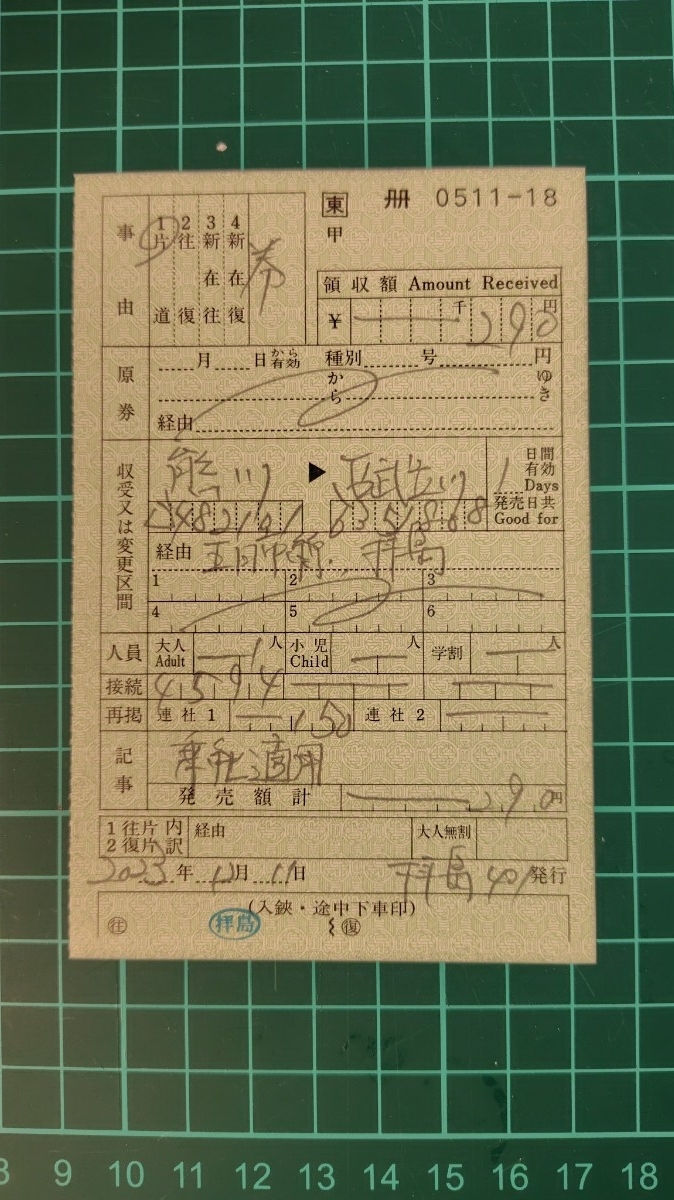 東 冊 0511-18
甲
事由
1片道 2往復 3新在往 4新在復 券
領収額 Amount Received
¥ 千 290 円
原券
月 日から有効 種別 号 円
から ゆき
経由
収受又は変更区間
熊川 ▶ 西武立川
1 日間有効 Days
発売日共 Good for
経由 五日市線, 拝島
1 2 3
4 5 6
人員 大人 Adult 1人 小児 Child 人 学割 人
接続 4594
再掲 連社1 150 連社2
記事
発売額計 290円
1往片 内 経由 大人無割
2復片 訳
2023年12月11日 拝島401発行
(入鋏・途中下車印)
往 拝島 復
8 9 10 11 12 13 14 15 16 17 18